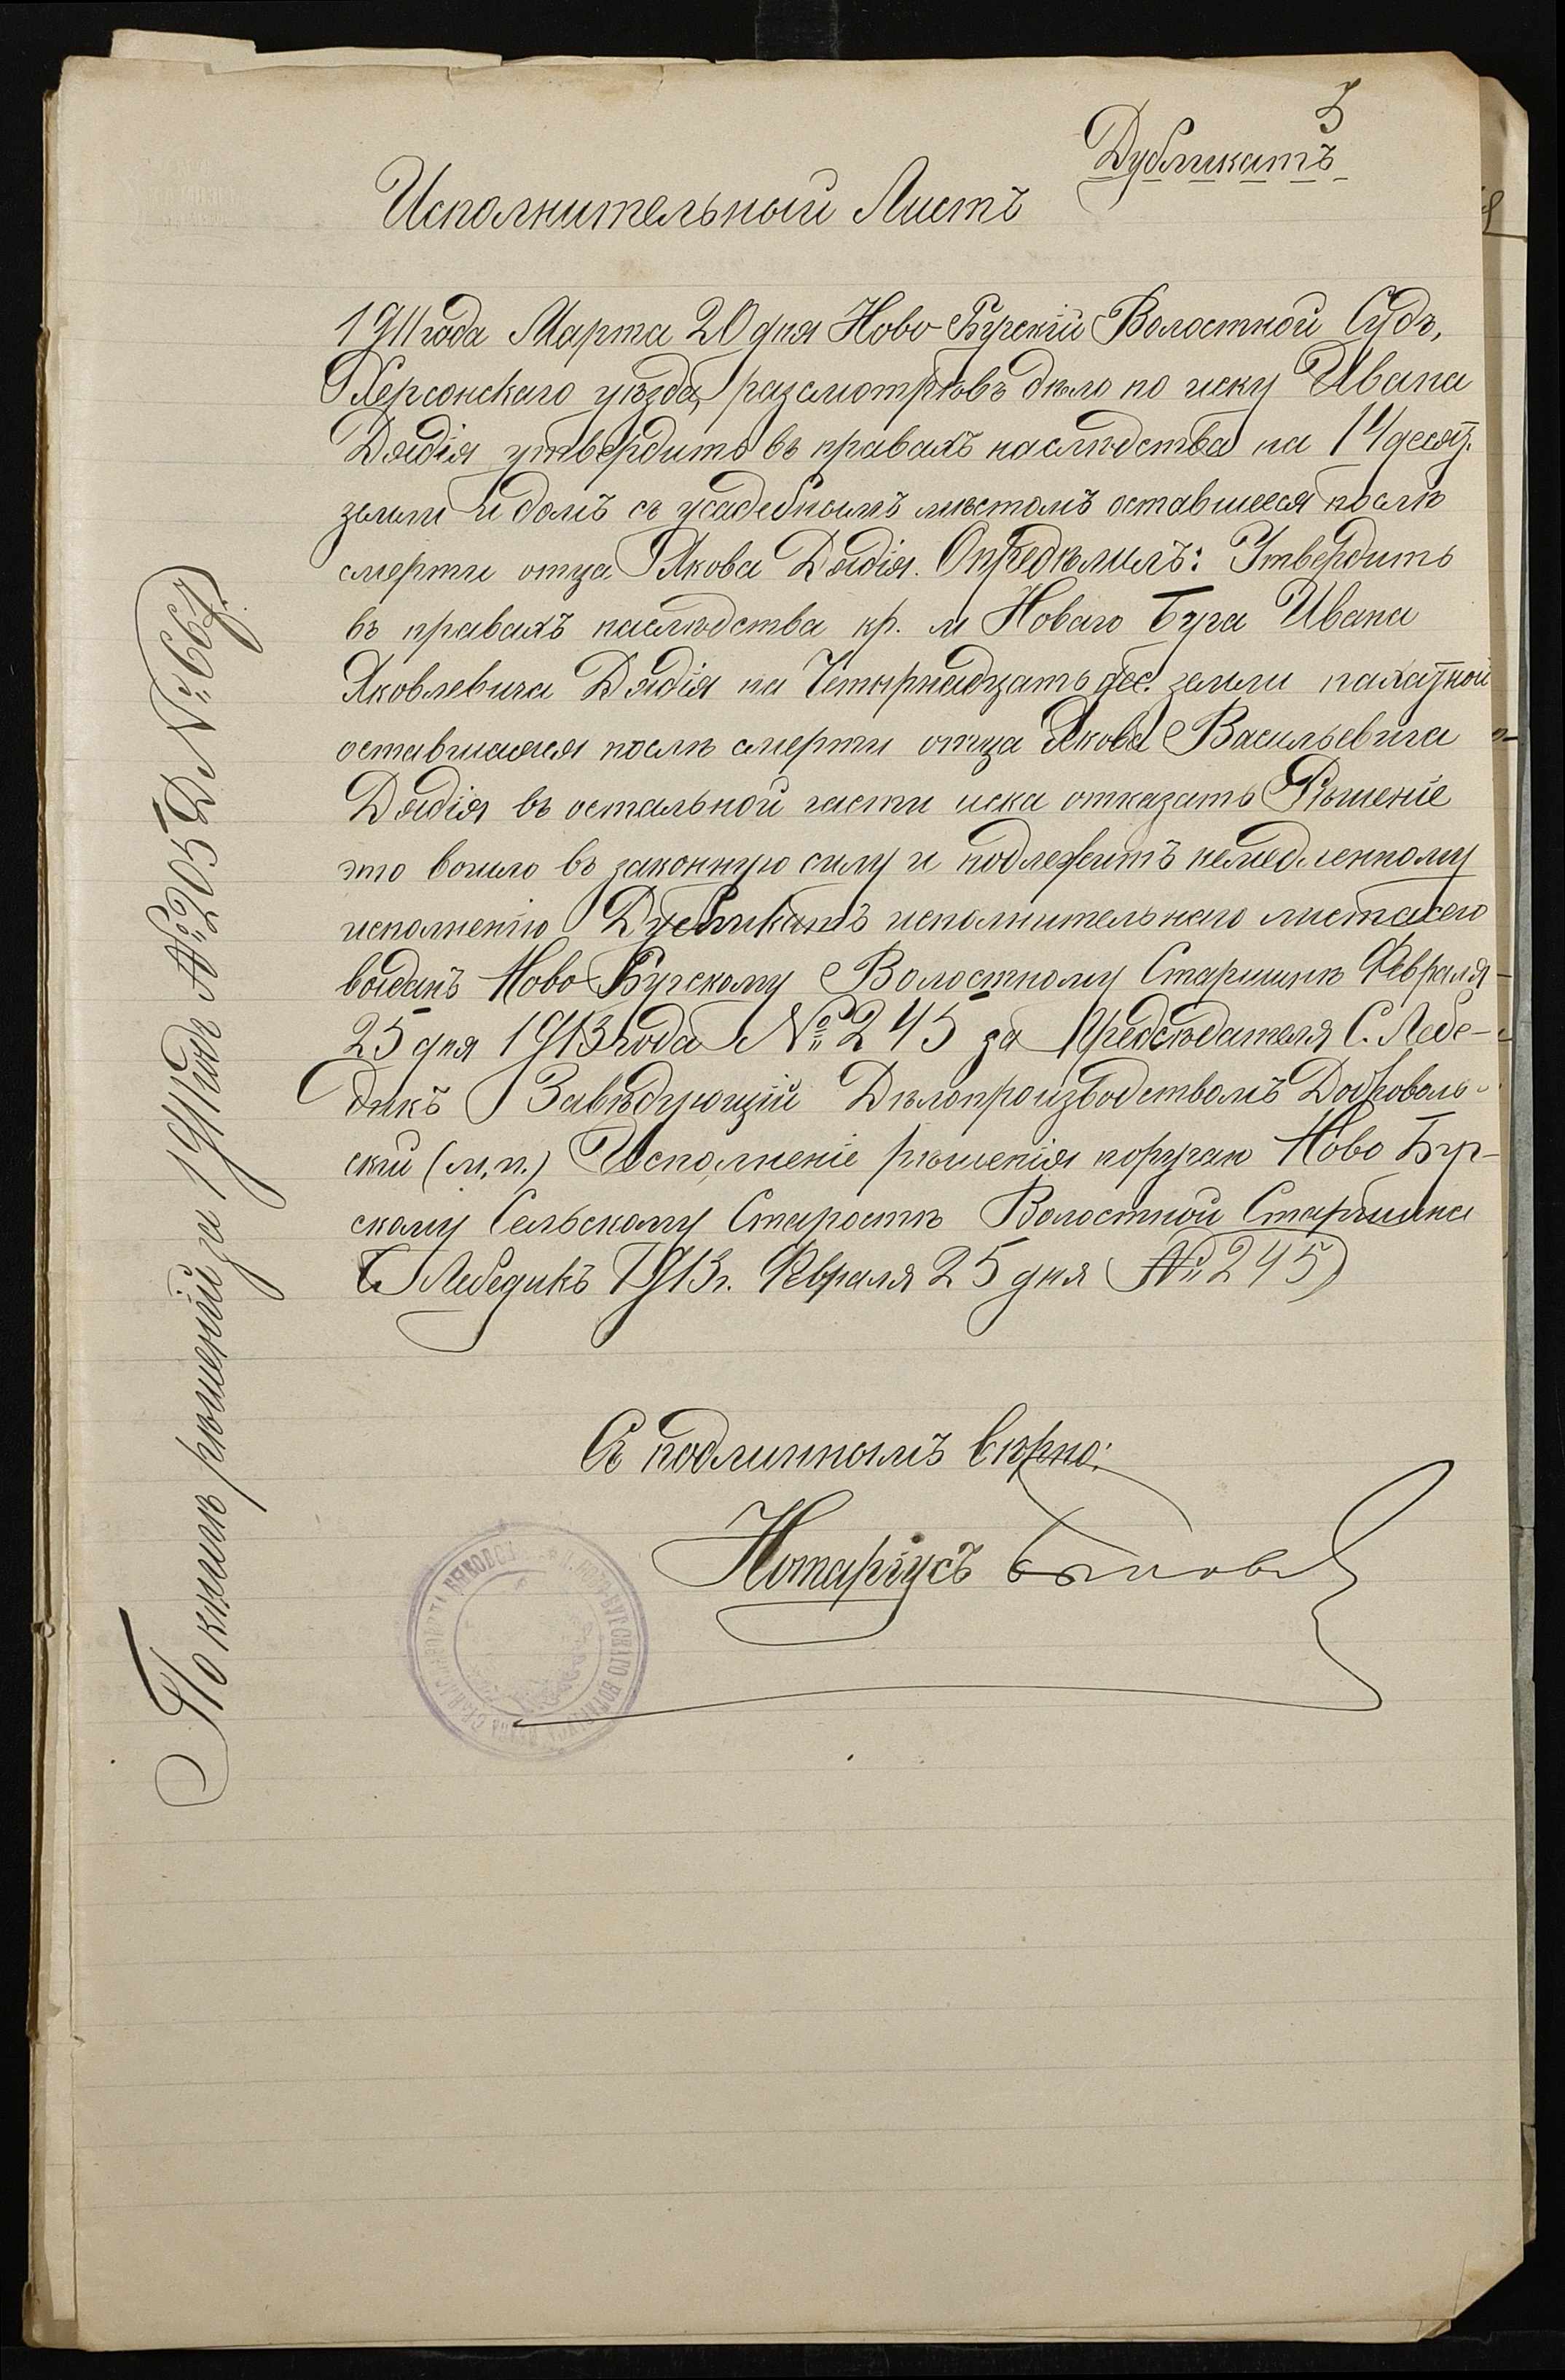 3
Дубликатъ
Исполнительный Листъ
1911 года Марта 20 дня Ново-Бугскій Волостной Судъ,
Херсонскаго уѣзда, разсмотрѣвъ дѣло по иску Ивана
Дядія утвердить въ правахъ наслѣдства на 14 десят.
земли и домъ съ усадебнымъ мѣстомъ оставшееся послѣ
смерти отца Якова Дядія. Опредѣлилъ: Утвердить
въ правахъ наслѣдства кр. м Новаго Буга Ивана
Яковлевича Дядія на Четырнадцать дес. земли пахатной
оставшаяся послѣ смерти отца Якова Васильевича
Дядія въ остальной части иска отказать Рѣшеніе
это вошло въ законную силу и подлежитъ немедленному
исполненію Дубликатъ исполнительнаго листа сего
выданъ Ново Бугскому Волостному Старшинѣ Февраля
25 дня 1913 года № 245 за Предсѣдателя С. Лебе-
дикъ Завѣдующій Дѣлопроизводствомъ Добровол
скій (м.п.) Исполненіе рѣшенія поручаю Ново Буг-
скому Сельскому Старостѣ Волостной Старшина
С Лебедикъ 1913 г. Февраля 25 дня № 245)
Съ подлиннымъ вѣрно:
Нотаріусъ
По книгѣ рѣшеній за 1911 годъ № 205 Д № 66)